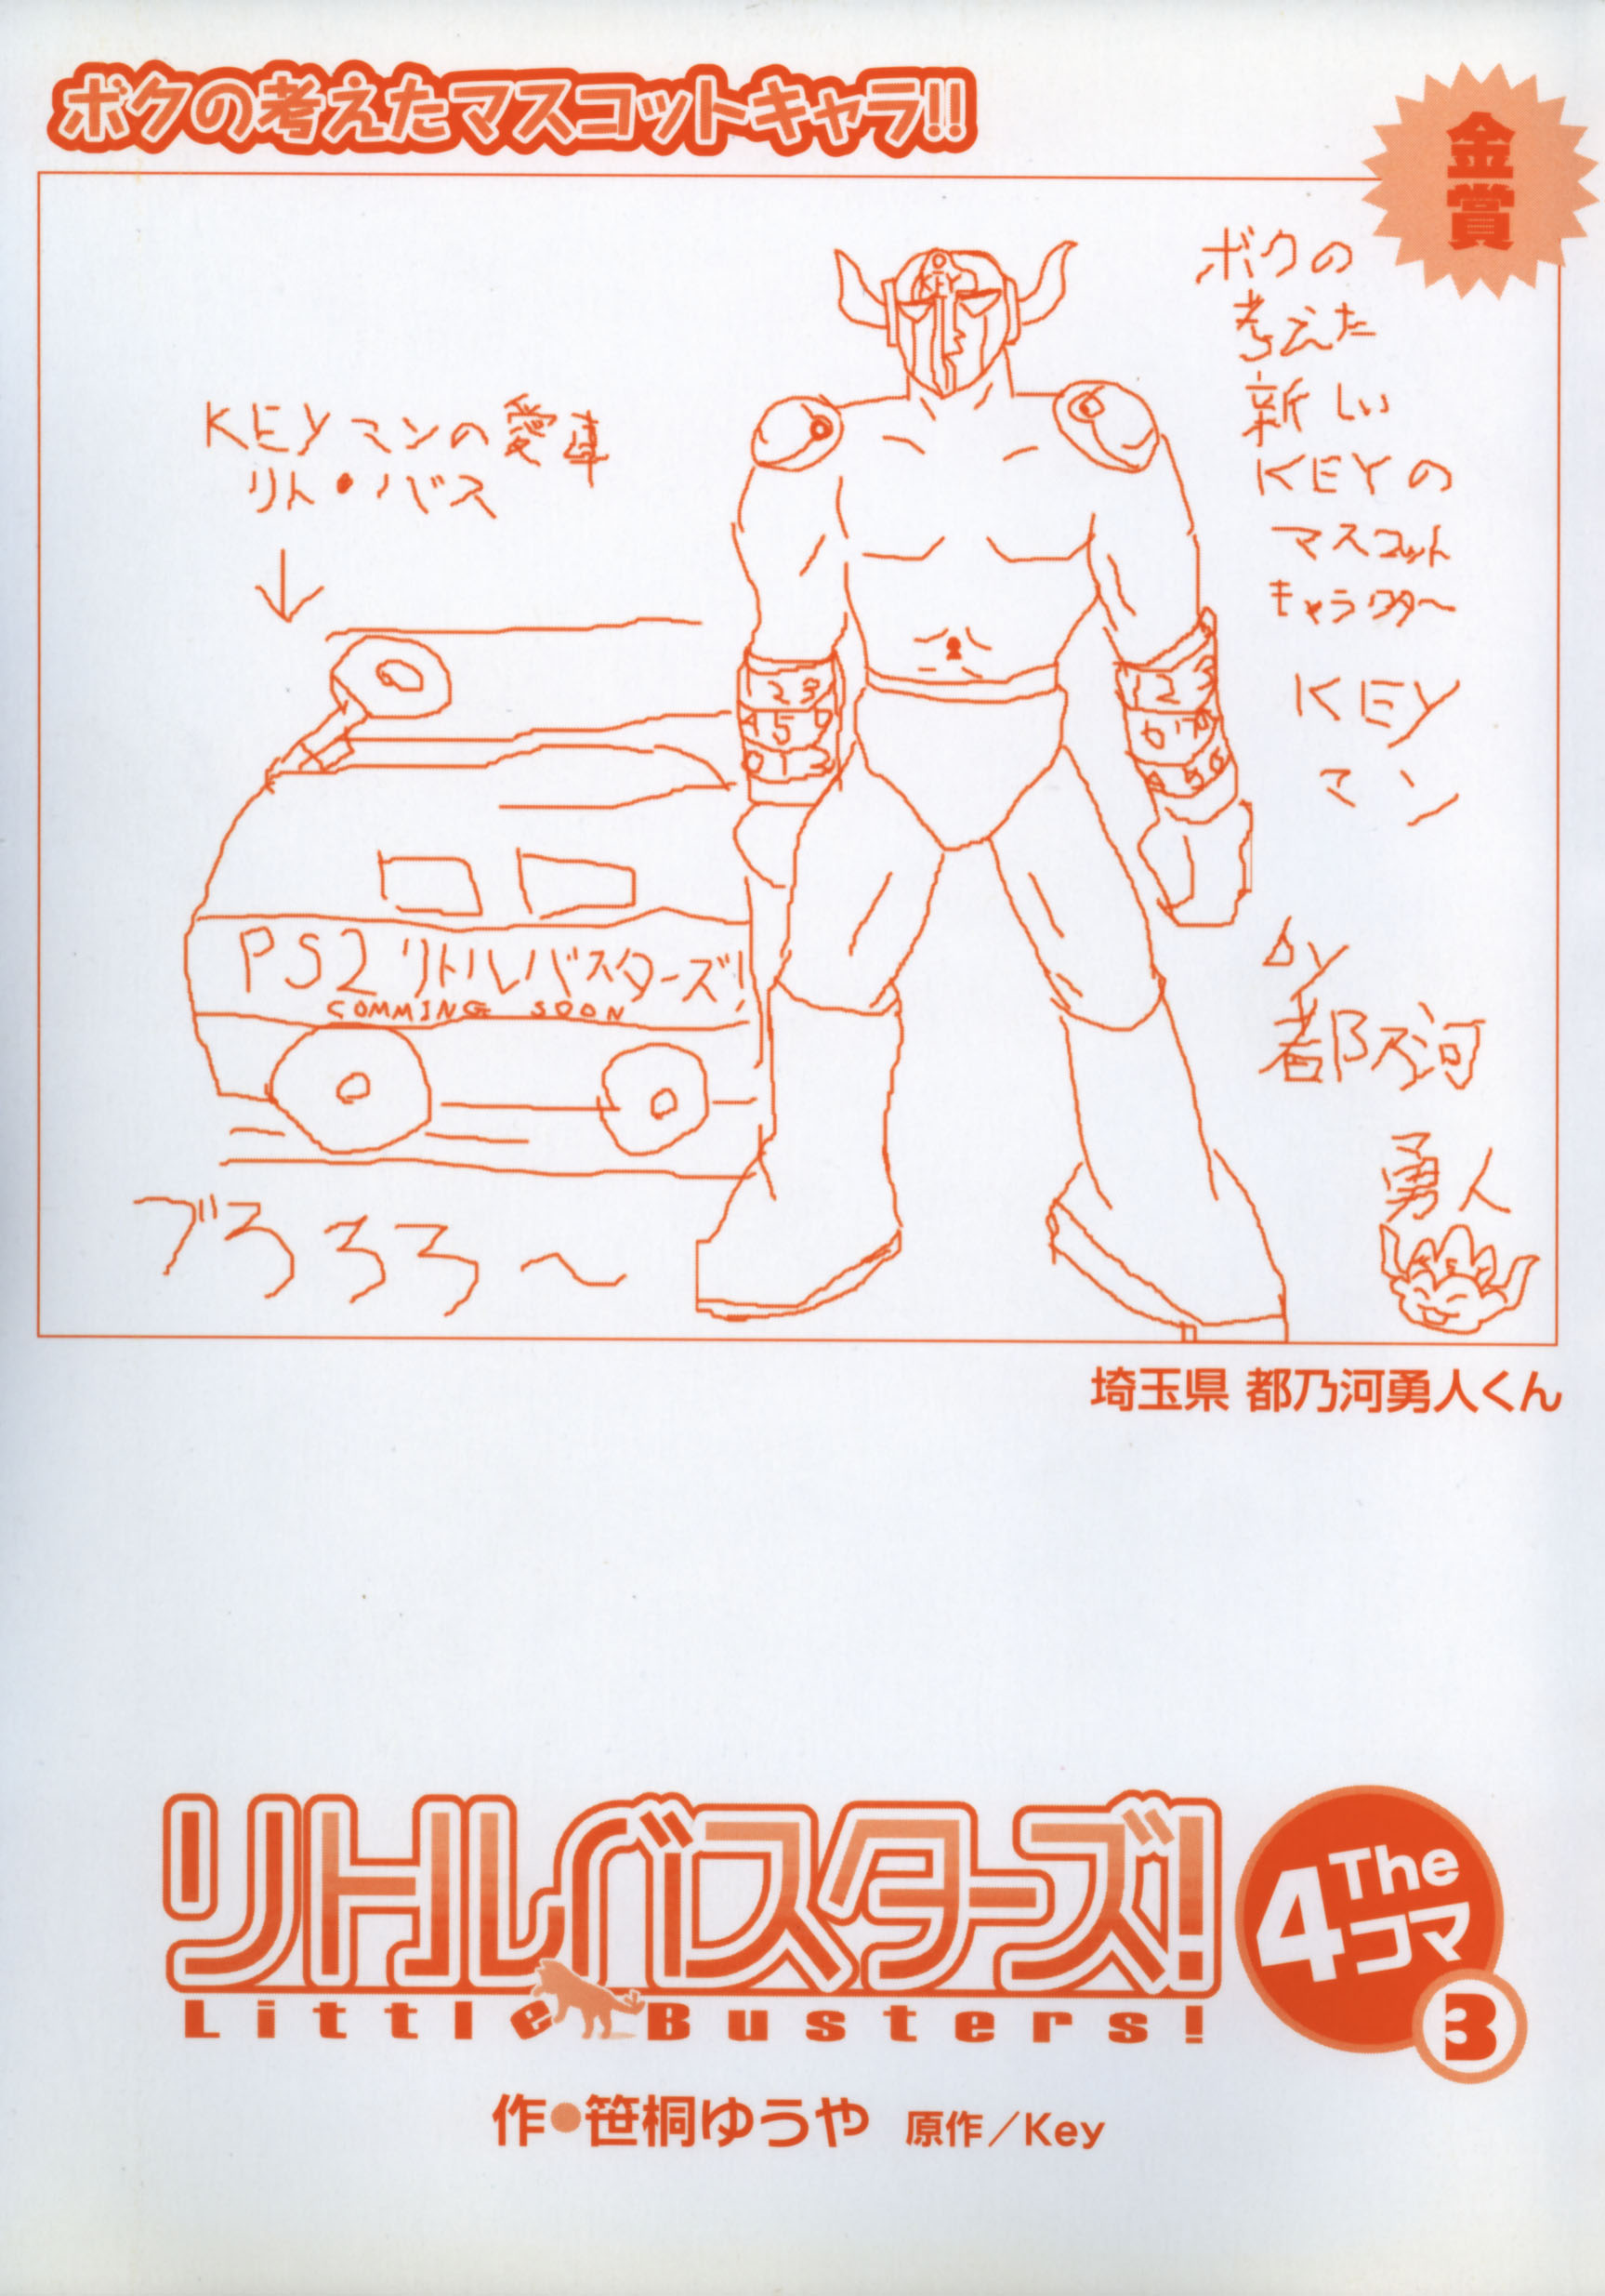 ボクの考えたマスコットキャラ!!
金賞
ボクの
考えた
新しい
KEYの
マスコット
キャラクター
KEY
マン
by
都乃河
勇人
KEY
KEYマンの愛車
リト・バス
↓
PS2 リトルバスターズ!
COMMING SOON
ブろろろ〜
埼玉県 都乃河勇人くん
リトルバスターズ!
Little Busters!
The
4コマ
3
作●笹桐ゆうや 原作/Key